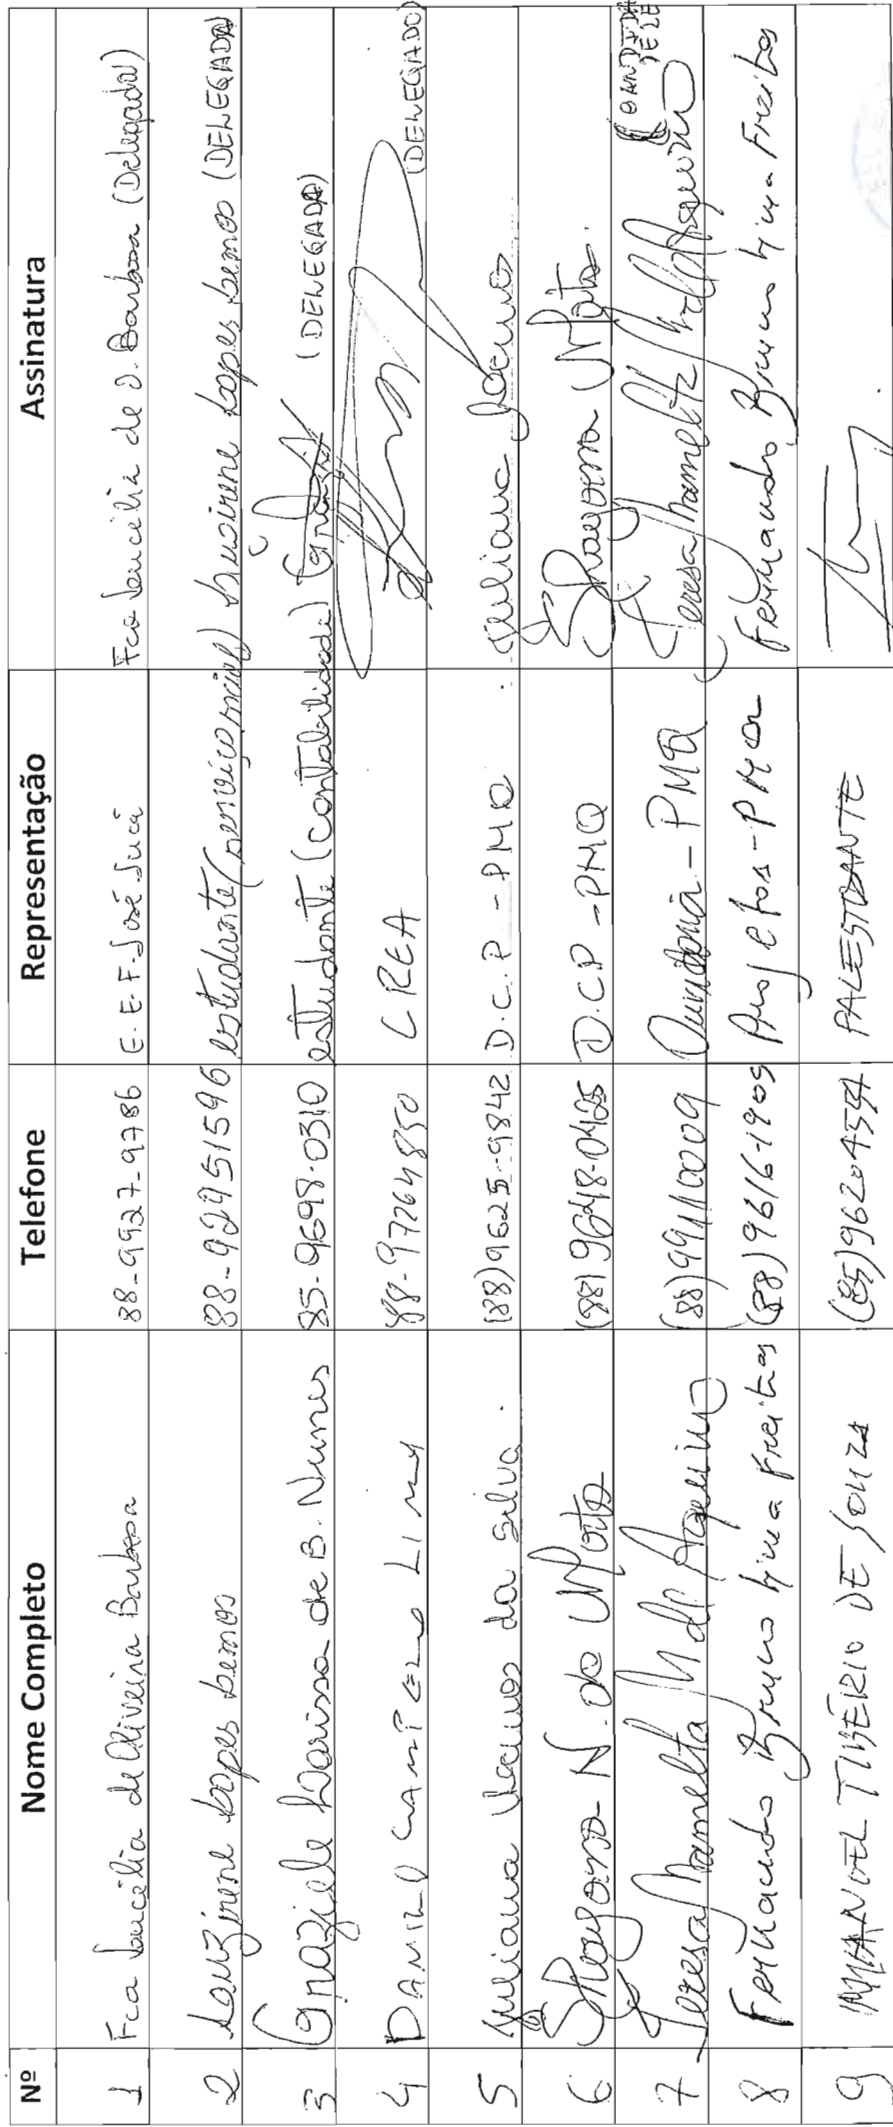 Nº Nome Completo Telefone Representação Assinatura
1 Fca Lucélia de Oliveira Barbosa 88-9927-9786 E.E.F. José Jucá Fca Lucélia de O. Barbosa (Delegada)
2 Lauzirene Lopes Lemos 88-92951596 estudante (serviço social) Lopes Lemos (DELEGADA)
3 Graziele Larissa de B. Nunes 85-9698-0310 estudante (contabilidade) (DELEGADA)
4 DANILO LIMA 88-97264850 CREA (DELEGADO)
5 Juliana Lemos da Silva. (88) 9625-9842 D.C.P - PMQ Juliana Lemos
6 N. da Mota (88) 9648-0425 D.C.P - PMQ Mota.
7 Teresa de Aquino (88) 99110009 Ouvidoria - PMQ Teresa
8 Fernando Bruno Lima Freitas (88) 9616-1909 Projetos - PMQ Fernando Bruno Lima Freitas
9 TIBÉRIO DE SOUZA (85) PALESTRANTE